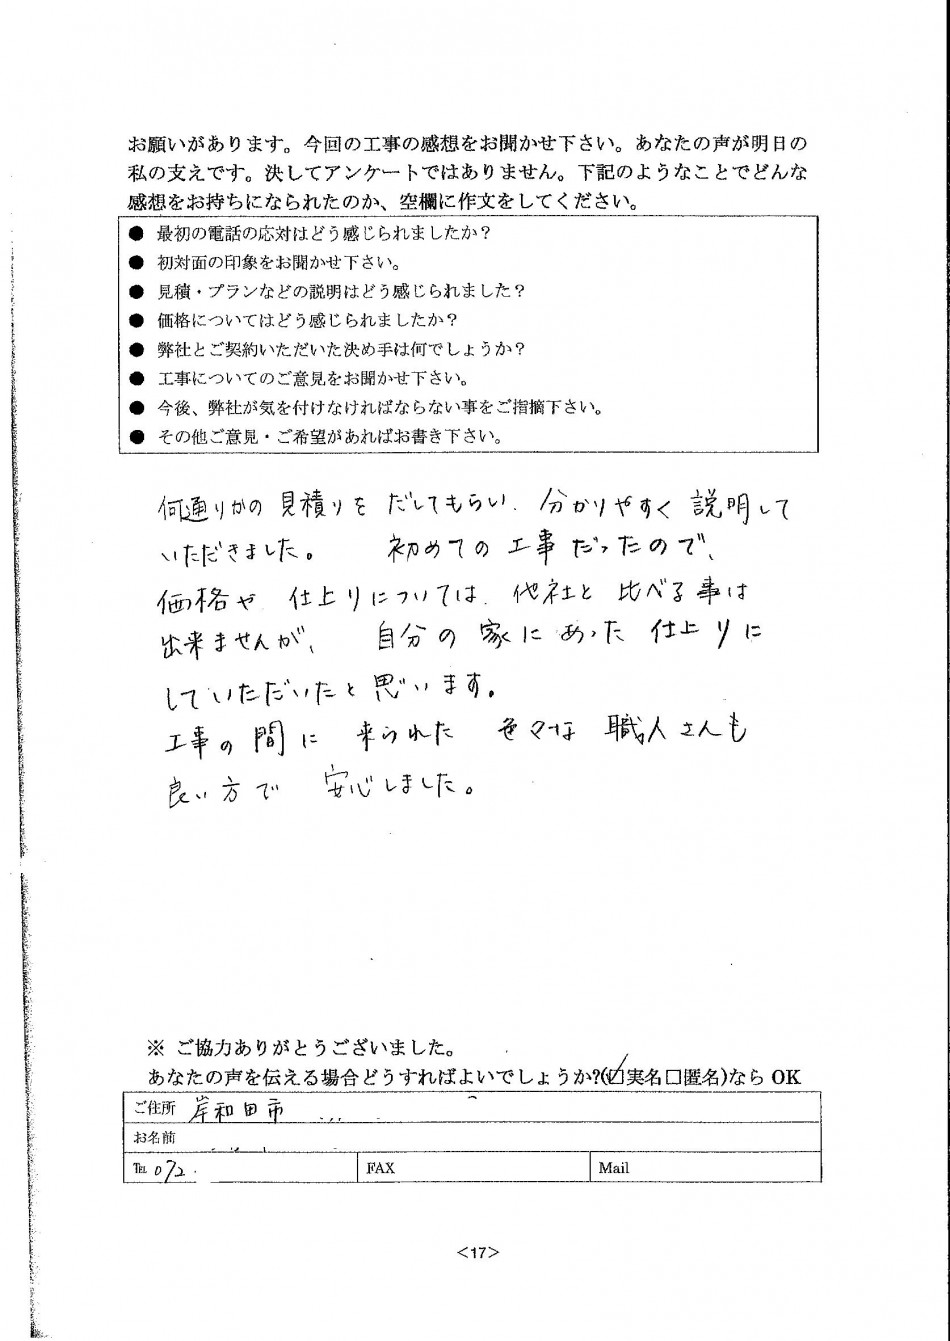 お願いがあります。今回の工事の感想をお聞かせ下さい。あなたの声が明日の
私の支えです。決してアンケートではありません。下記のようなことでどんな
感想をお持ちになられたのか、空欄に作文をしてください。
● 最初の電話の応対はどう感じられましたか？
● 初対面の印象をお聞かせ下さい。
● 見積・プランなどの説明はどう感じられました？
● 価格についてはどう感じられましたか？
● 弊社とご契約いただいた決め手は何でしょうか？
● 工事についてのご意見をお聞かせ下さい。
● 今後、弊社が気を付けなければならない事をご指摘下さい。
● その他ご意見・ご希望があればお書き下さい。
何通りかの見積りをだしてもらい、分かりやすく説明して
いただきました。 初めての工事だったので、
価格や仕上りについては、他社と比べる事は
出来ませんが、 自分の家にあった仕上りに
していただいたと思います。
工事の間に 来られた 色々な職人さんも
良い方で 安心しました。
※ ご協力ありがとうございました。
あなたの声を伝える場合どうすればよいでしょうか?(☑実名□匿名)なら OK
ご住所 岸和田市
お名前
℡ 072 FAX Mail
<17>